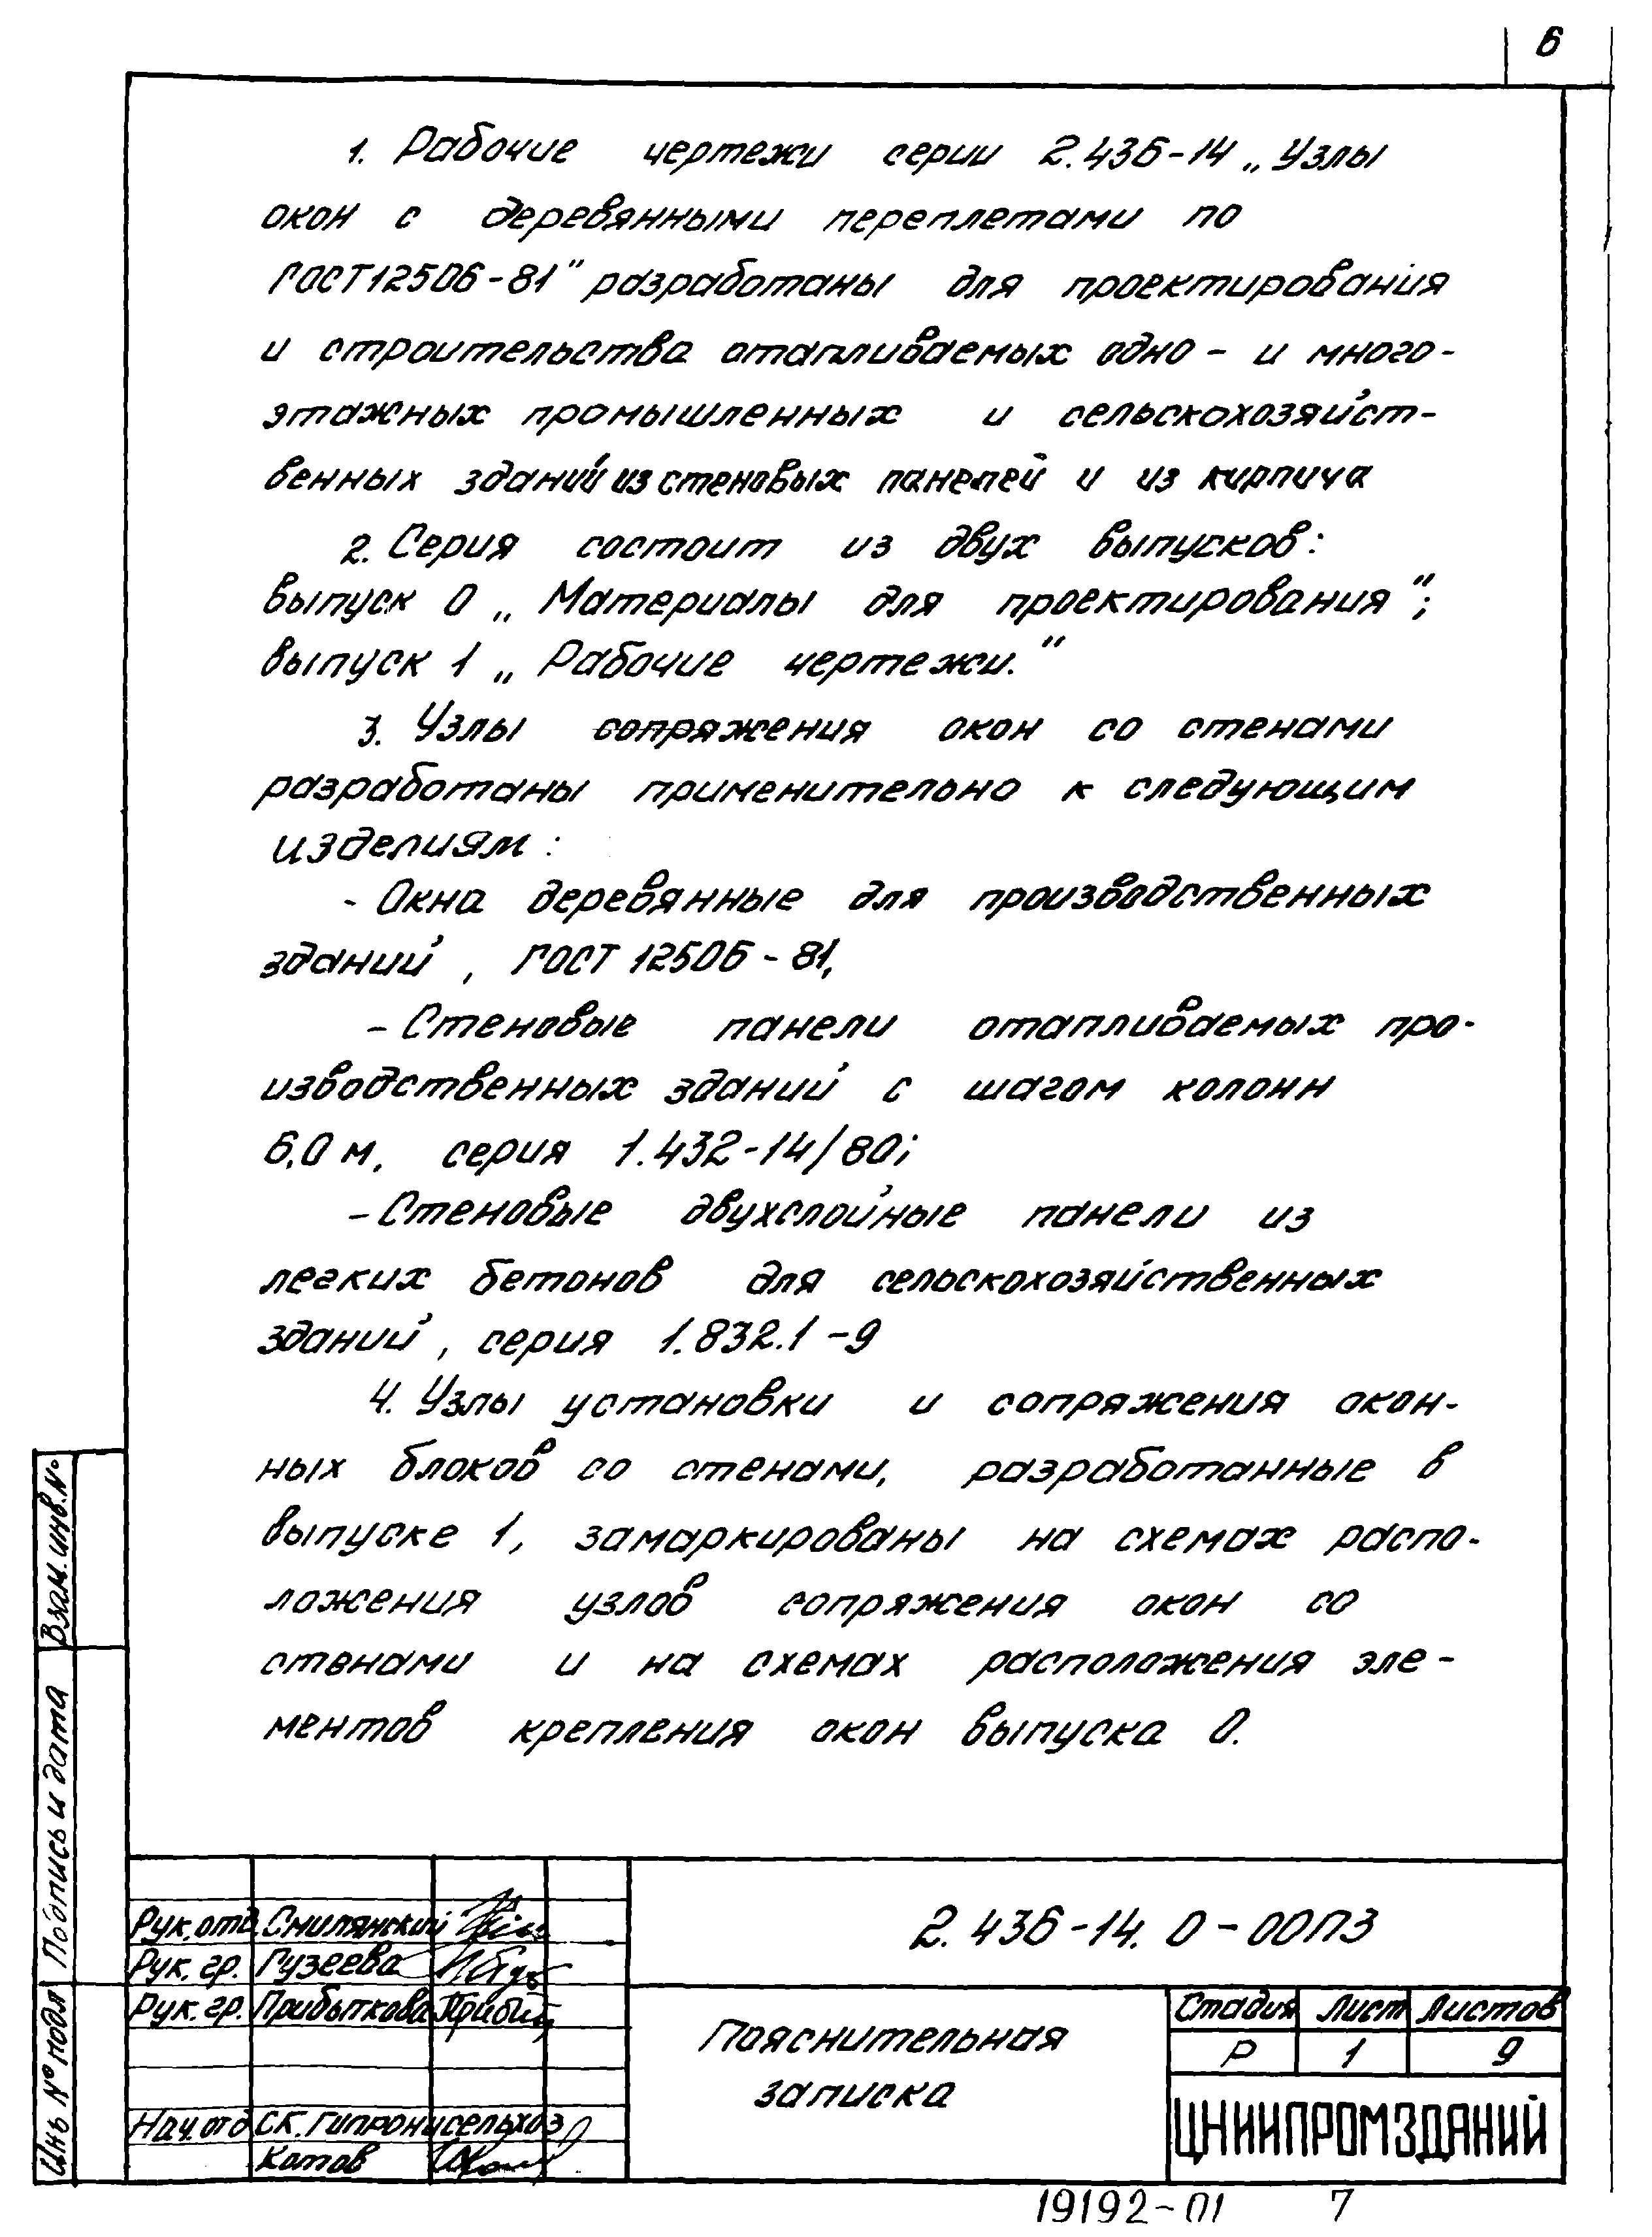 6
1. Рабочие чертежи серии 2.436-14 „Узлы
окон с деревянными переплетами по
ГОСТ12506-81" разработаны для проектирования
и строительства отапливаемых одно- и много-
этажных промышленных и сельскохозяйст-
венных зданий из стеновых панелей и из кирпича
2. Серия состоит из двух выпусков:
выпуск 0 „Материалы для проектирования";
выпуск 1 „Рабочие чертежи."
3. Узлы сопряжения окон со стенами
разработаны применительно к следующим
изделиям:
- Окна деревянные для производственных
зданий, ГОСТ 12506-81,
- Стеновые панели отапливаемых про-
изводственных зданий с шагом колонн
6,0 м, серия 1.432-14/80;
- Стеновые двухслойные панели из
легких бетонов для сельскохозяйственных
зданий, серия 1.832.1-9
4. Узлы установки и сопряжения окон-
ных блоков со стенами, разработанные в
выпуске 1, замаркированы на схемах распо-
ложения узлов сопряжения окон со
стенами и на схемах расположения эле-
ментов крепления окон выпуска 0.
Взам.инв.№
Подпись и дата
Инв №подл
Рук.отд. Смилянский
Рук.гр. Гузеева
Рук.гр. Прибыткова
Нач.отд СК.Гипронисельхоз
Котов
2.436-14.0-00ПЗ
Пояснительная
записка
Стадия Лист Листов
Р 1 9
ЦНИИПРОМЗДАНИЙ
19192-01 7